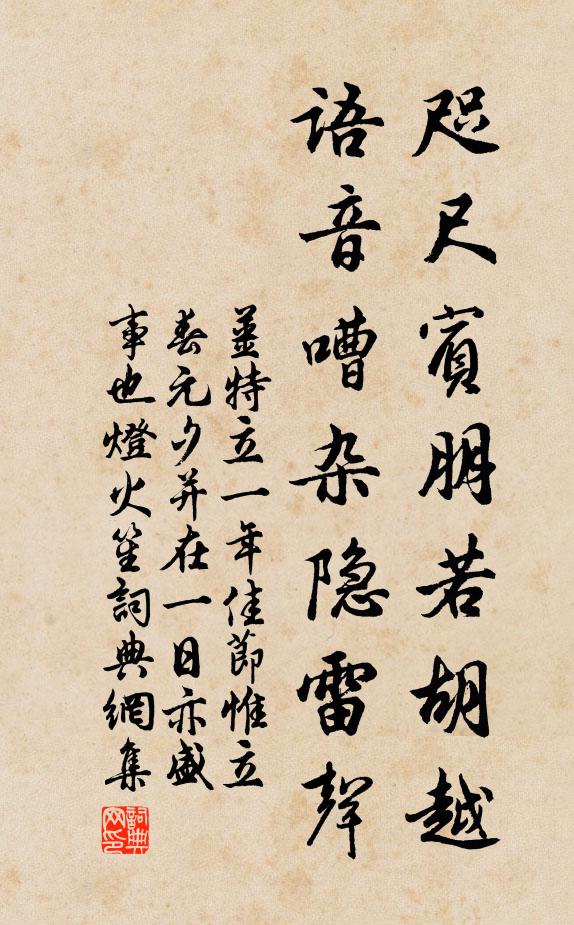 咫尺賓朋若胡越
語音嘈杂隐雷聲
姜特立一年佳節惟立
春元夕并在一日亦盛
事也燈火笙詞典網集
詞典网印